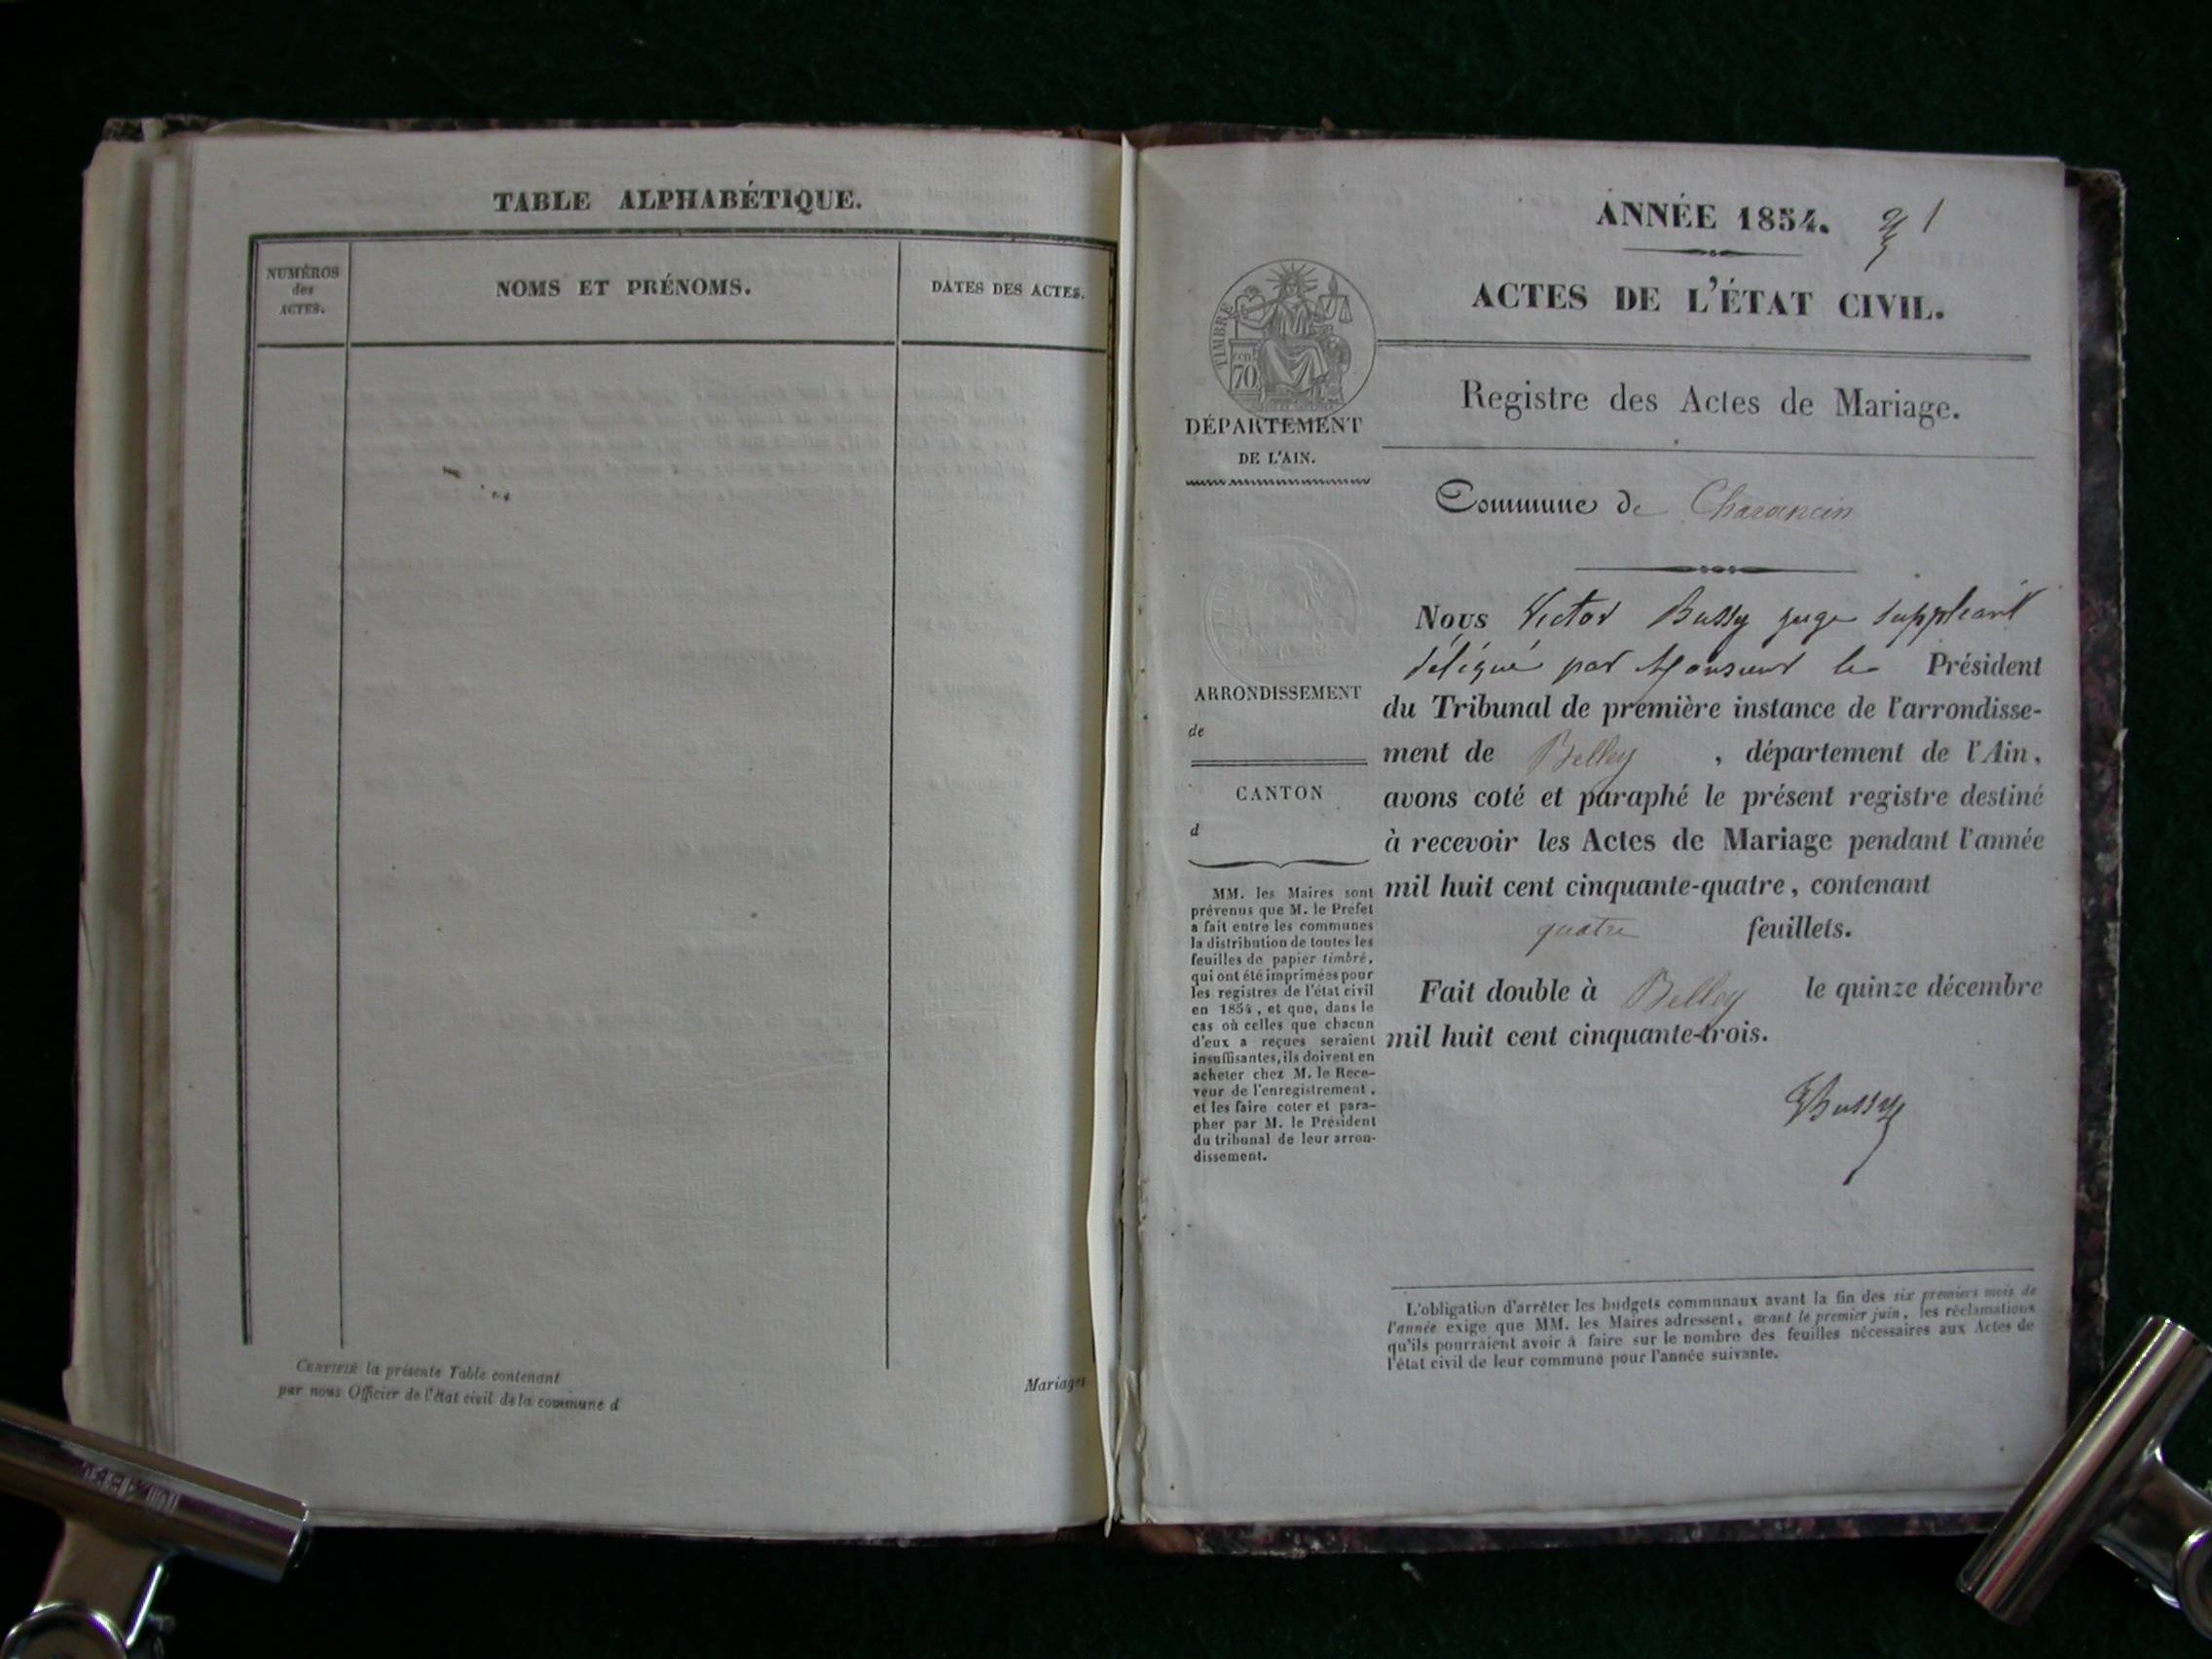 TABLE ALPHABÉTIQUE.
NUMÉROS
des
ACTES.
NOMS ET PRÉNOMS.
DATES DES ACTES.
CERTIFIÉ la présente Table contenant
Mariages
par nous Officier de l'état civil de la commune d
ANNÉE 1854.
1
ACTES DE L'ÉTAT CIVIL.
TIMBRE
cen.
70
DÉPARTEMENT
DE L'AIN.
Registre des Actes de Mariage.
Commune de Charancin
Nous Victor Bussy juge suppléant
délégué par Monsieur le Président
du Tribunal de première instance de l'arrondisse-
ment de Belley, département de l'Ain,
avons coté et paraphé le présent registre destiné
à recevoir les Actes de Mariage pendant l'année
mil huit cent cinquante-quatre, contenant
quatre feuillets.
Fait double à Belley le quinze décembre
mil huit cent cinquante-trois.
Bussy
ARRONDISSEMENT
de
CANTON
d
MM. les Maires sont
prévenus que M. le Préfet
a fait entre les communes
la distribution de toutes les
feuilles de papier timbré,
qui ont été imprimées pour
les registres de l'état civil
en 1854, et que, dans le
cas où celles que chacun
d'eux a reçues seraient
insuffisantes, ils doivent en
acheter chez M. le Rece-
veur de l'enregistrement,
et les faire coter et para-
pher par M. le Président
du tribunal de leur arron-
dissement.
L'obligation d'arrêter les budgets communaux avant la fin des six premiers mois de
l'année exige que MM. les Maires adressent, avant le premier juin, les réclamations
qu'ils pourraient avoir à faire sur le nombre des feuilles nécessaires aux Actes de
l'état civil de leur commune pour l'année suivante.